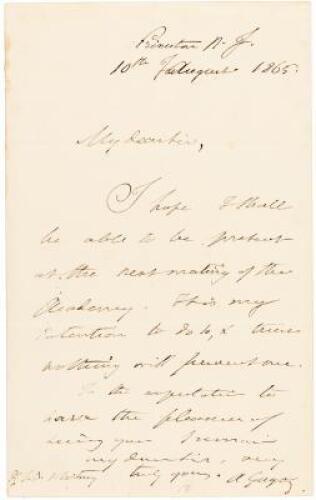 Princeton N. J.
10th August 1865.
My dear Sir,
I hope I shall
be able to be present
at the next meeting of the
Academy. It is my
intention to do so, &
nothing will prevent me.
In the expectation to
have the pleasure of
seeing you I remain
my dear Sir, very
truly yours. A Guyot
Whitney